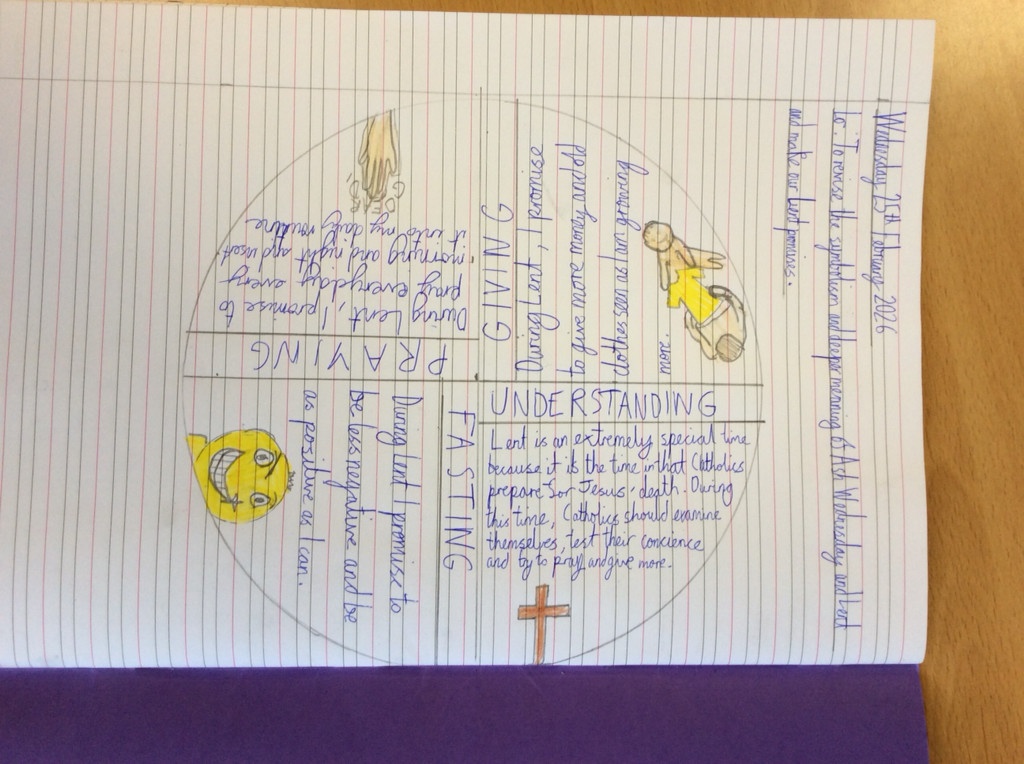 Wednesday 25th February 2026
Lo: To revise the symbolism and deeper meaning of Ash Wednesday and Lent
and make our Lent promises.
GIVING
During Lent, I promise
to give more money and old
clothes seen as I am growing
more.
UNDERSTANDING
Lent is an extremely special time
because it is the time in that Catholics
prepare for Jesus' death. During
this time, Catholics should examine
themselves, test their concience
and try to pray and give more.
FASTING
During Lent I promise to
be less negative and be
as positive as I can.
PRAYING
During Lent, I promise to
pray everyday every
morning and night and inset
it into my daily routine